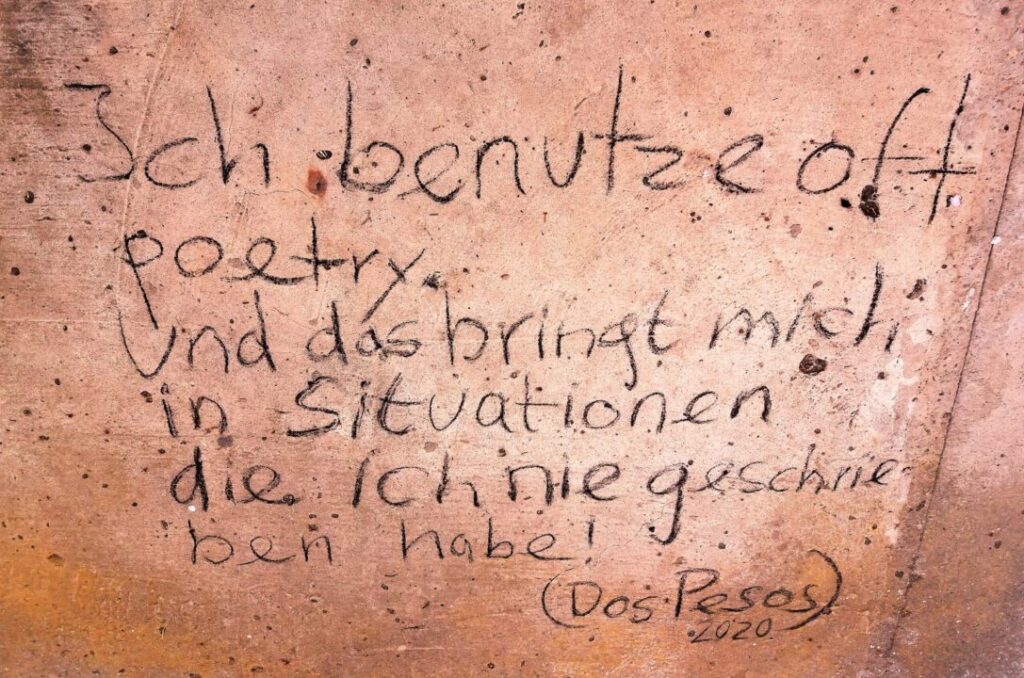 Ich benutze oft
poetry.
Und das bringt mich
in Situationen
die ich nie geschrie
ben habe!
(Dos Pesos)
2020